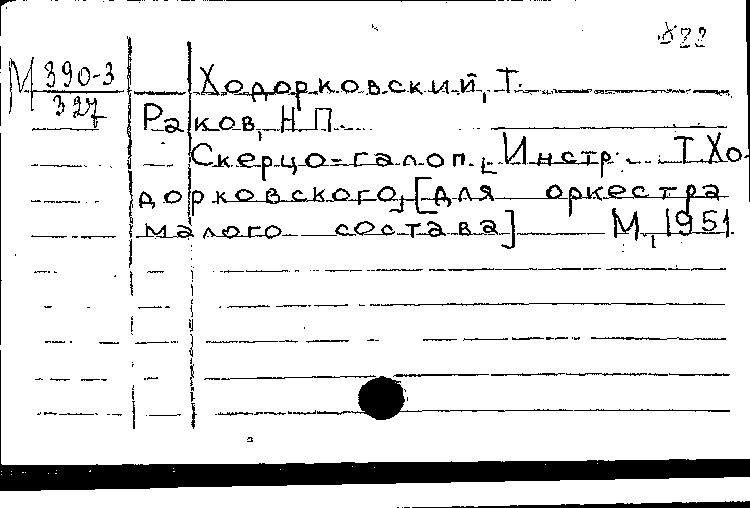 М 390-3
327
Ходорковский, Т.
Раков, Н.П.
Скерцо-галоп. [Инстр. Т. Хо-
дорковского], [для оркестра
малого состава] М., 1951.